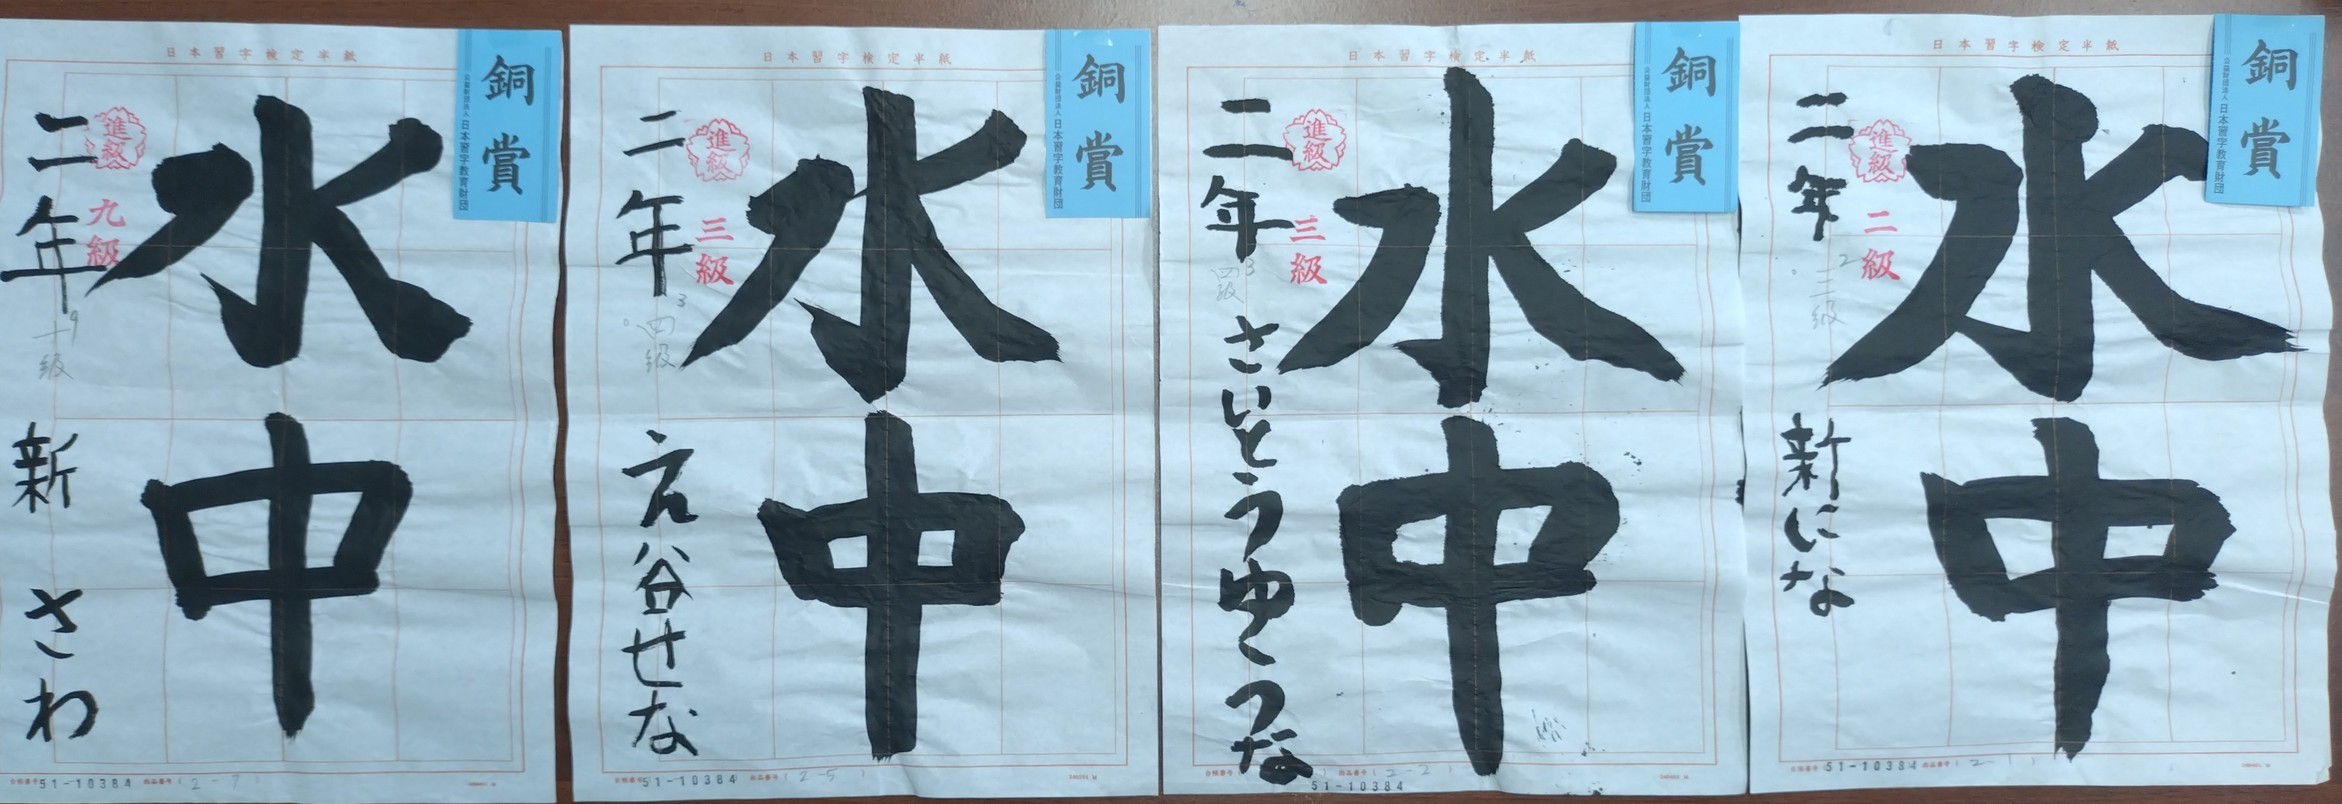 日本習字検定半紙
銅賞
公益財団法人 日本習字教育財団
水中
進級
九級
二年
十級
9
新 さわ
51-10384
2-7
日本習字検定半紙
銅賞
公益財団法人 日本習字教育財団
水中
進級
三級
二年
3
四級
谷せな
51-10384
2-5
日本習字検定半紙
銅賞
公益財団法人 日本習字教育財団
水中
進級
三級
二年
3
四級
さいとうゆくな
51-10384
2-2
日本習字検定半紙
銅賞
公益財団法人 日本習字教育財団
水中
進級
二級
二年
2
三級
新にな
51-10384
2-1